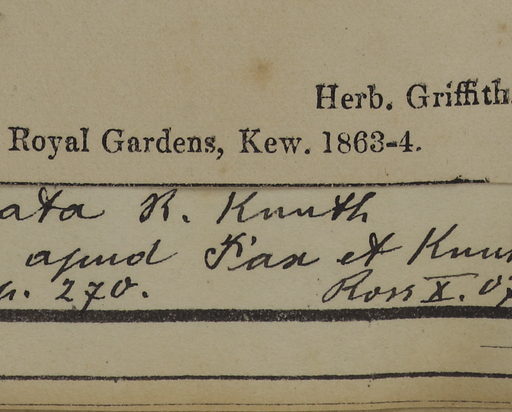 Herb. Griffith
Royal Gardens, Kew. 1863-4.
ata R. Knuth
apud Pax et Knu
p. 270. Ross X. 07